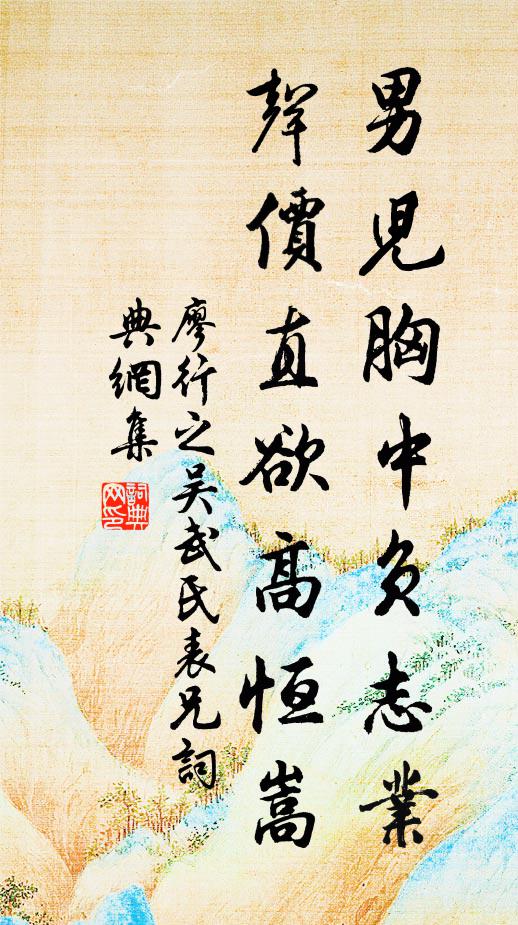 男児胸中負志業
聲價直欲高恒嵩
廖行之吴武氏表兄詞
典網集
詞典
网印